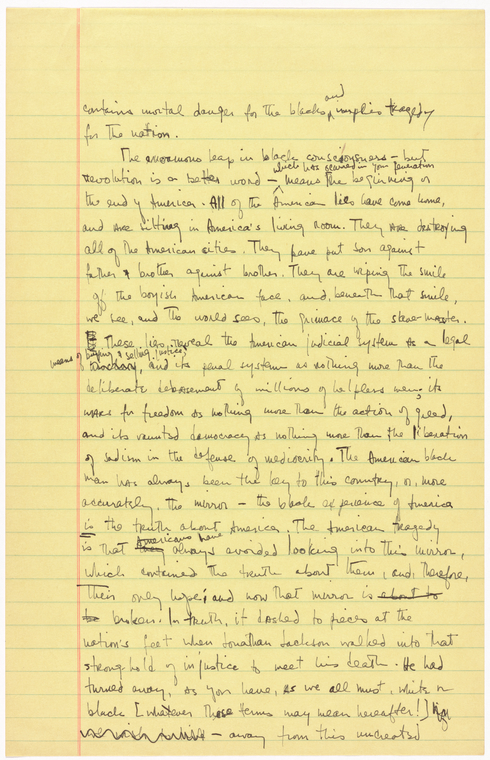 contains mortal danger for the blacks, and implies tragedy
for the nation.
The enormous leap in black consciousness — but
revolution is a better word — which has occurred in your generation means the beginning or
the end of America. All of the American lies have come home,
and are sitting in America's living room. They are destroying
all of the American cities. They have put son against
father & brother against brother. They are wiping the smile
off the boyish American face, and, beneath that smile,
we see, and the world sees, the grimace of the slave-master.
These lies reveal the American judicial system as a legal
means of buying & selling justice, and its penal system as nothing more than the
deliberate debasement of millions of helpless men, its
wars for freedom as nothing more than the action of greed,
and its vaunted democracy as nothing more than the liberation
of sadism in the defense of mediocrity. The American black
man has always been the key to this country, or, more
accurately, the mirror — the black experience of America
is the truth about America. The American tragedy
is that Americans have always avoided looking into this mirror,
which contained the truth about them, and, therefore,
their only hope; and now that mirror is about to
be broken. In truth, it dashed to pieces at the
nation's feet when Jonathan Jackson walked into that
stronghold of injustice to meet his death. He had
turned away, as you have, as we all must, white or
black [whatever those terms may mean hereafter!]
— away from this uncreated